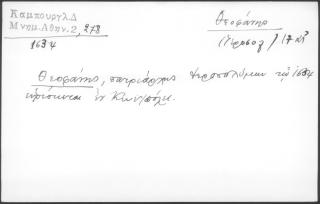 Καμπουργλ.Δ
Μνημ.Αθην.2, 278
1634
Θεοφάνης
17 αἰ
Θεοφάνης, πατριάρχης Ἱεροσολύμων τῷ 1634
εὑρίσκεται ἐν Κων/πόλει.